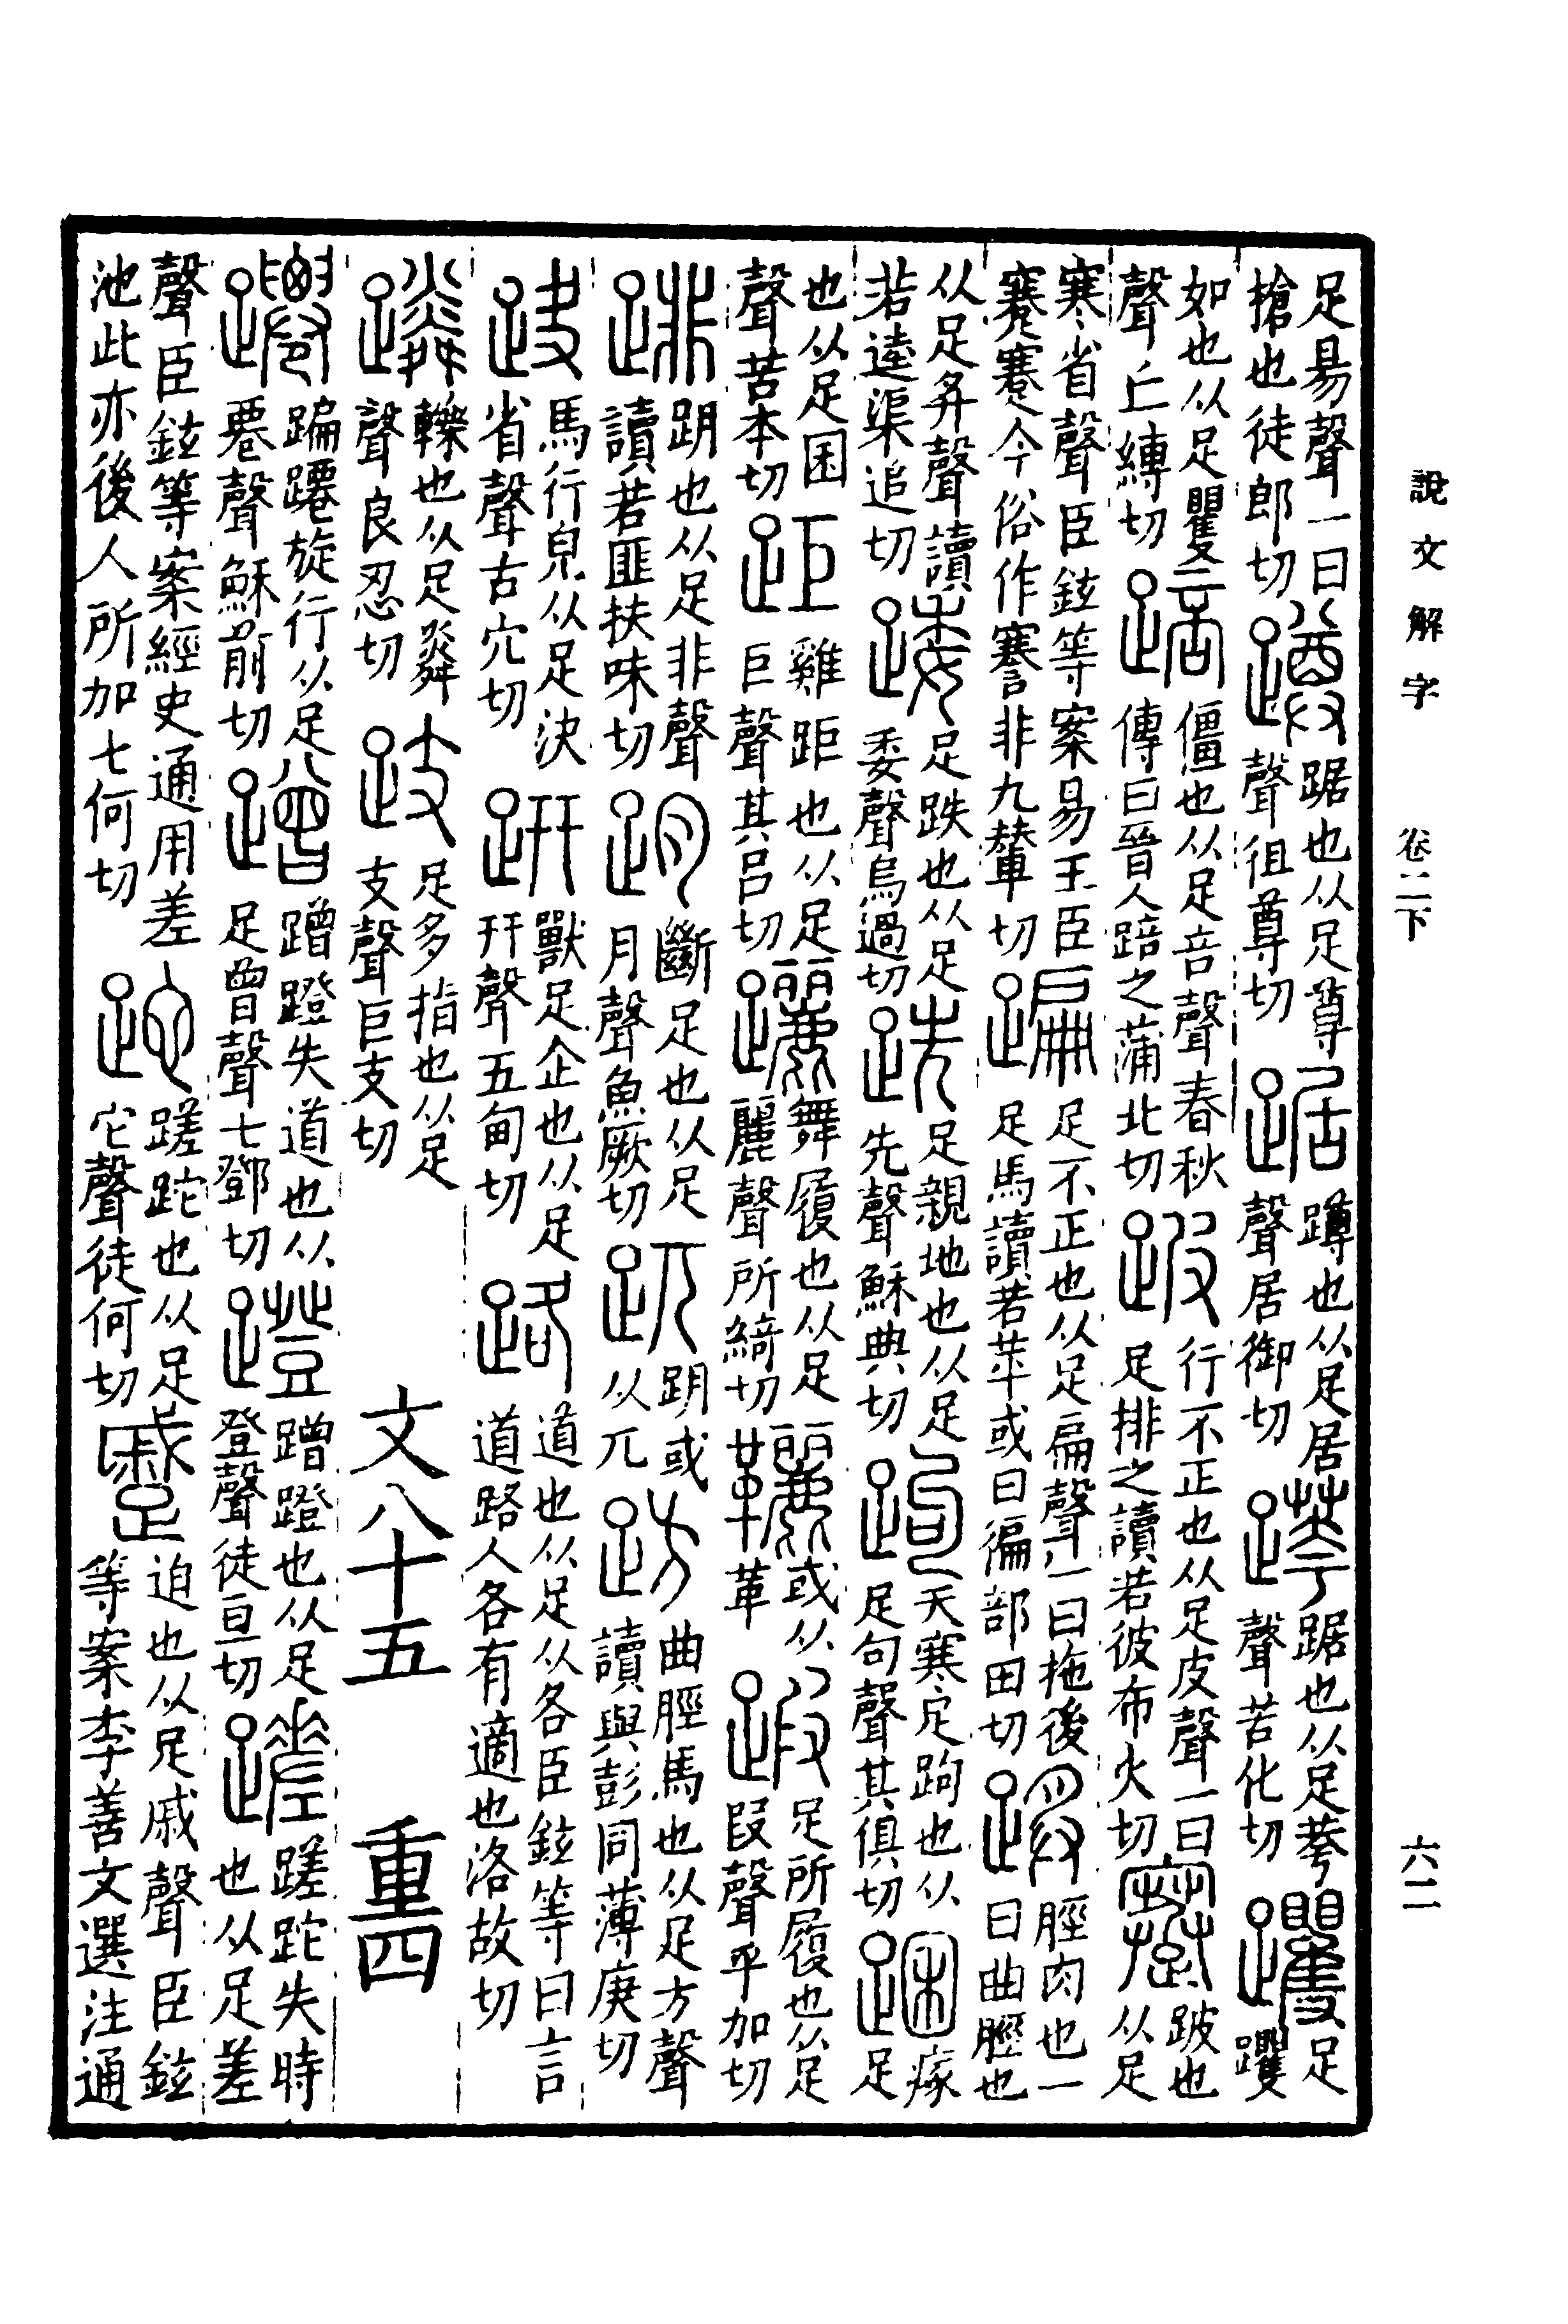 說文解字 卷二下 六二
足昜聲一曰搶也徒郎切蹲踞也从足尊聲徂尊切踞蹲也从足居聲居御切跨踞也从足荂聲苦化切躩足躩
如也从足矍聲丘縛切踣僵也从足咅聲春秋傳曰晉人踣之蒲北切跛行不正也从足皮聲一曰足排之讀若彼布火切蹇跛也从足
寒省聲臣鉉等案易王臣蹇蹇今俗作謇非九輦切蹁足不正也从足扁聲一曰拖後足馬讀若苹或曰徧部田切𨆌脛肉也一曰曲脛也
从足𢍏聲讀若逵渠追切踒足跌也从足委聲烏過切跣足親地也从足先聲穌典切跔天寒足跔也从足句聲其俱切䠅瘃足
也从足困聲苦本切距雞距也从足巨聲其呂切躧舞履也从足麗聲所綺切䩻或从革𨉣足所履也从足叚聲乎加切
𨂁跀也从足非聲讀若匪扶味切跀斷足也从足月聲魚厥切𧿁跀或从兀趽曲脛馬也从足方聲讀與彭同薄庚切
趹馬行皃从足決省聲古穴切趼獸足企也从足幵聲五甸切路道也从足从各臣鉉等曰言道路人各有適也洛故切
蹸轢也从足粦聲良忍切跂足多指也从足支聲巨支切 文八十五 重四
躚蹁躚旋行从足䙴聲穌前切蹭蹭蹬失道也从足曾聲七鄧切蹬蹭蹬也从足登聲徒亘切蹉蹉跎失時也从足差
聲臣鉉等案經史通用差池此亦後人所加七何切跎蹉跎也从足它聲徒何切蹙迫也从足戚聲臣鉉等案李善文選注通